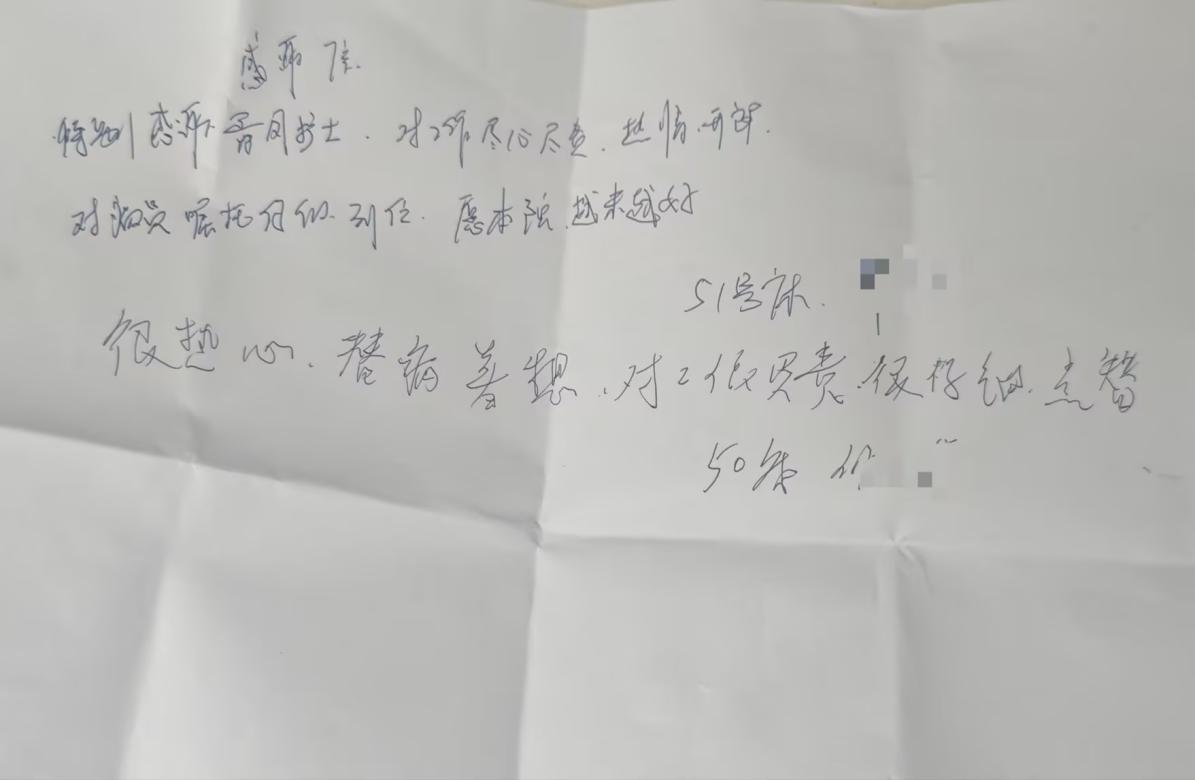 感谢信
特别感谢 护士.对工作尽心尽责.热情开朗.
对病员嘱托仔细.到位.愿本院越来越好
51号床.
很热心.替病着想.对工很负责.很仔细.点赞
50床